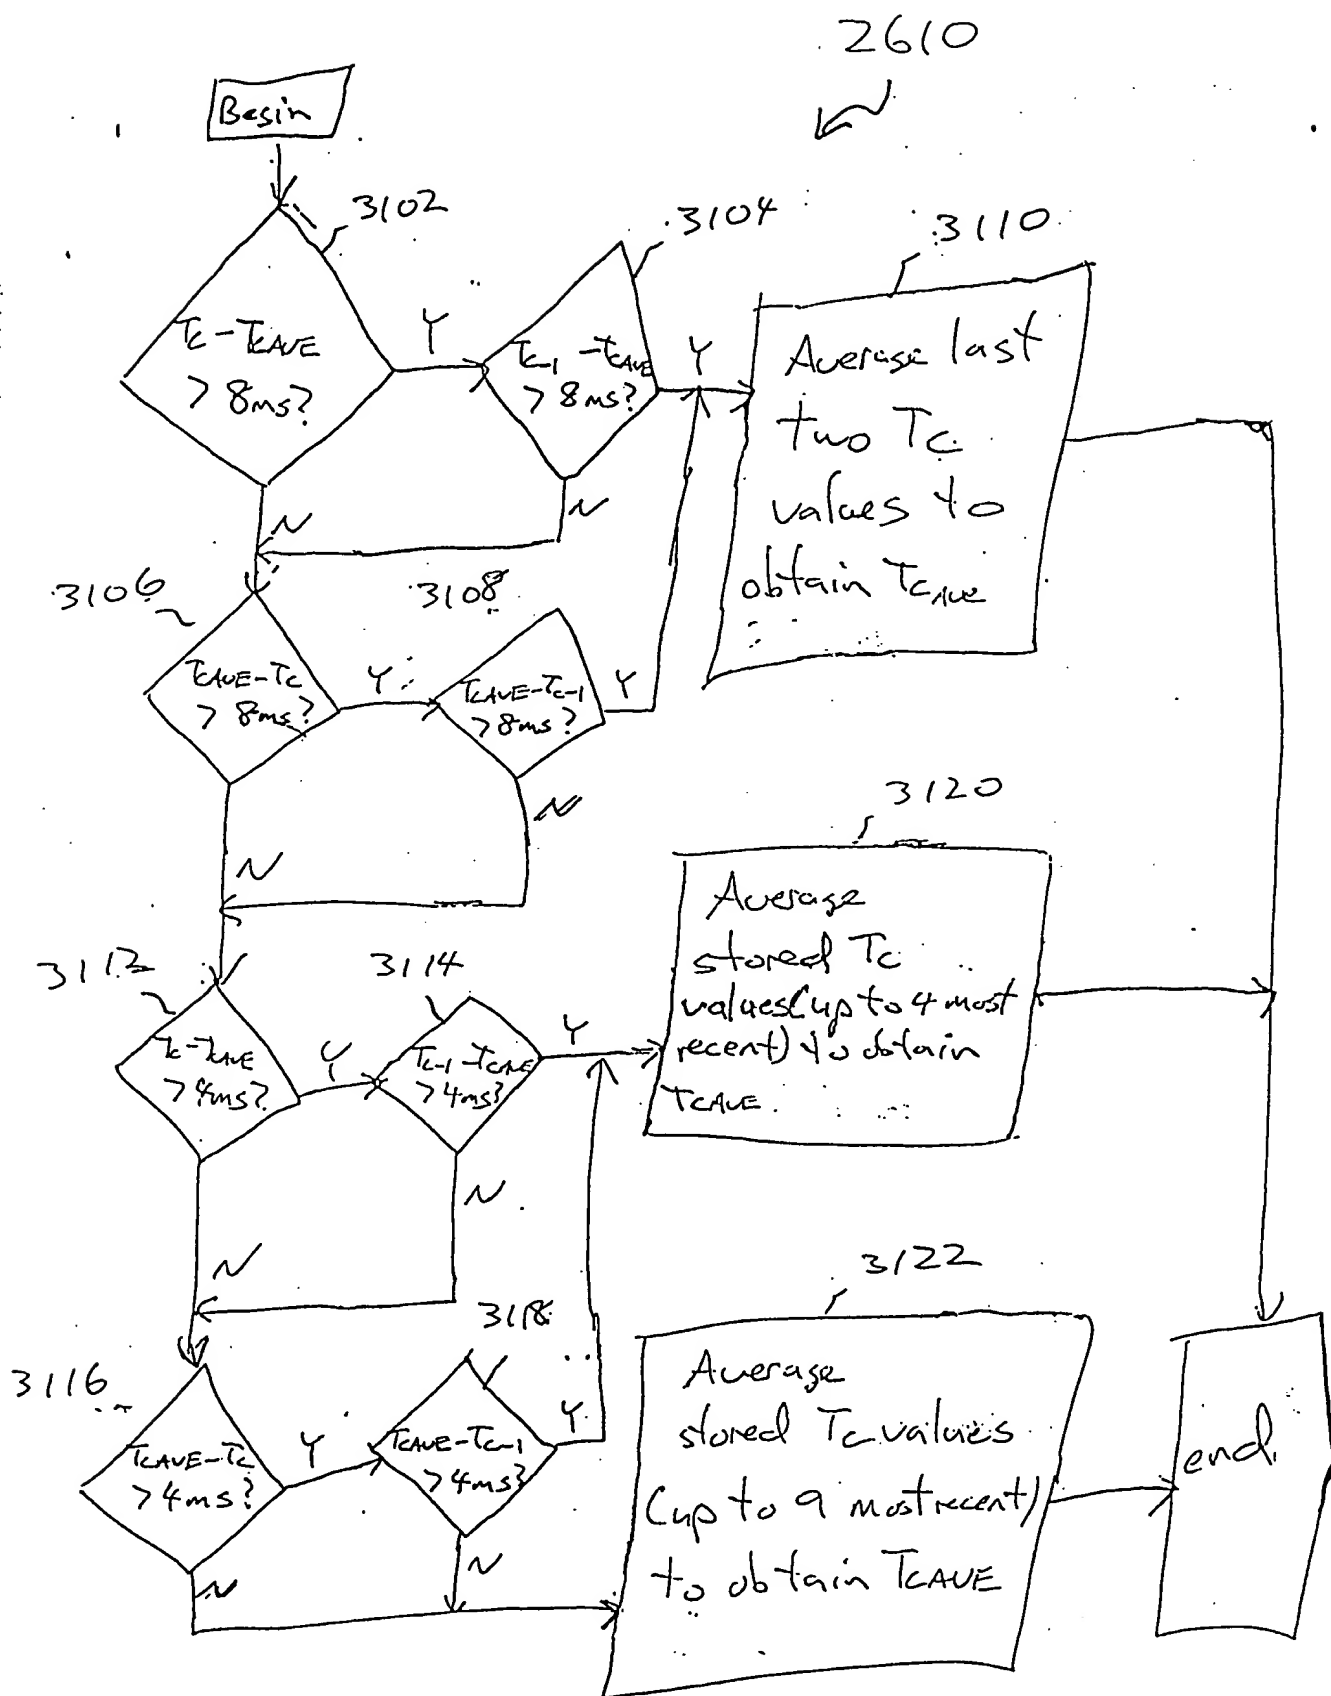 2610
Begin
3102
3104
3110
Tc-TCAVE
> 8ms?
Y
Tc-1 -TCAVE
> 8ms?
Y
Average last
two Tc
values to
obtain TCAVE
N
N
3106
3108
TCAVE-Tc
> 8ms?
Y
TCAVE-Tc-1
> 8ms?
Y
N
N
3120
Average
stored Tc
values (up to 4 most
recent) to obtain
TCAVE
3112
3114
Tc-TCAVE
> 4ms?
Y
Tc-1 -TCAVE
> 4ms?
Y
N
N
3122
3116
3118
TCAVE-Tc
> 4ms?
Y
TCAVE-Tc-1
> 4ms?
Y
N
N
Average
stored Tc values
(up to 9 most recent)
to obtain TCAVE
end